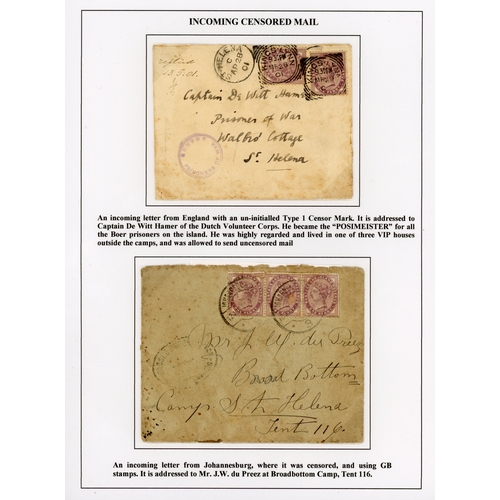 INCOMING CENSORED MAIL
ST HELENA
C
AP 28
01
Captain De Witt Hamer
Prisoner of War
Walbro Cottage
St. Helena
An incoming letter from England with an un-initialled Type 1 Censor Mark. It is addressed to
Captain De Witt Hamer of the Dutch Volunteer Corps. He became the “POSIMEISTER” for all
the Boer prisoners on the island. He was highly regarded and lived in one of three VIP houses
outside the camps, and was allowed to send uncensored mail
Mr J. W. du Preez
Broad Bottom
Camp St Helena
Tent 116.
An incoming letter from Johannesburg, where it was censored, and using GB
stamps. It is addressed to Mr. J.W. du Preez at Broadbottom Camp, Tent 116.